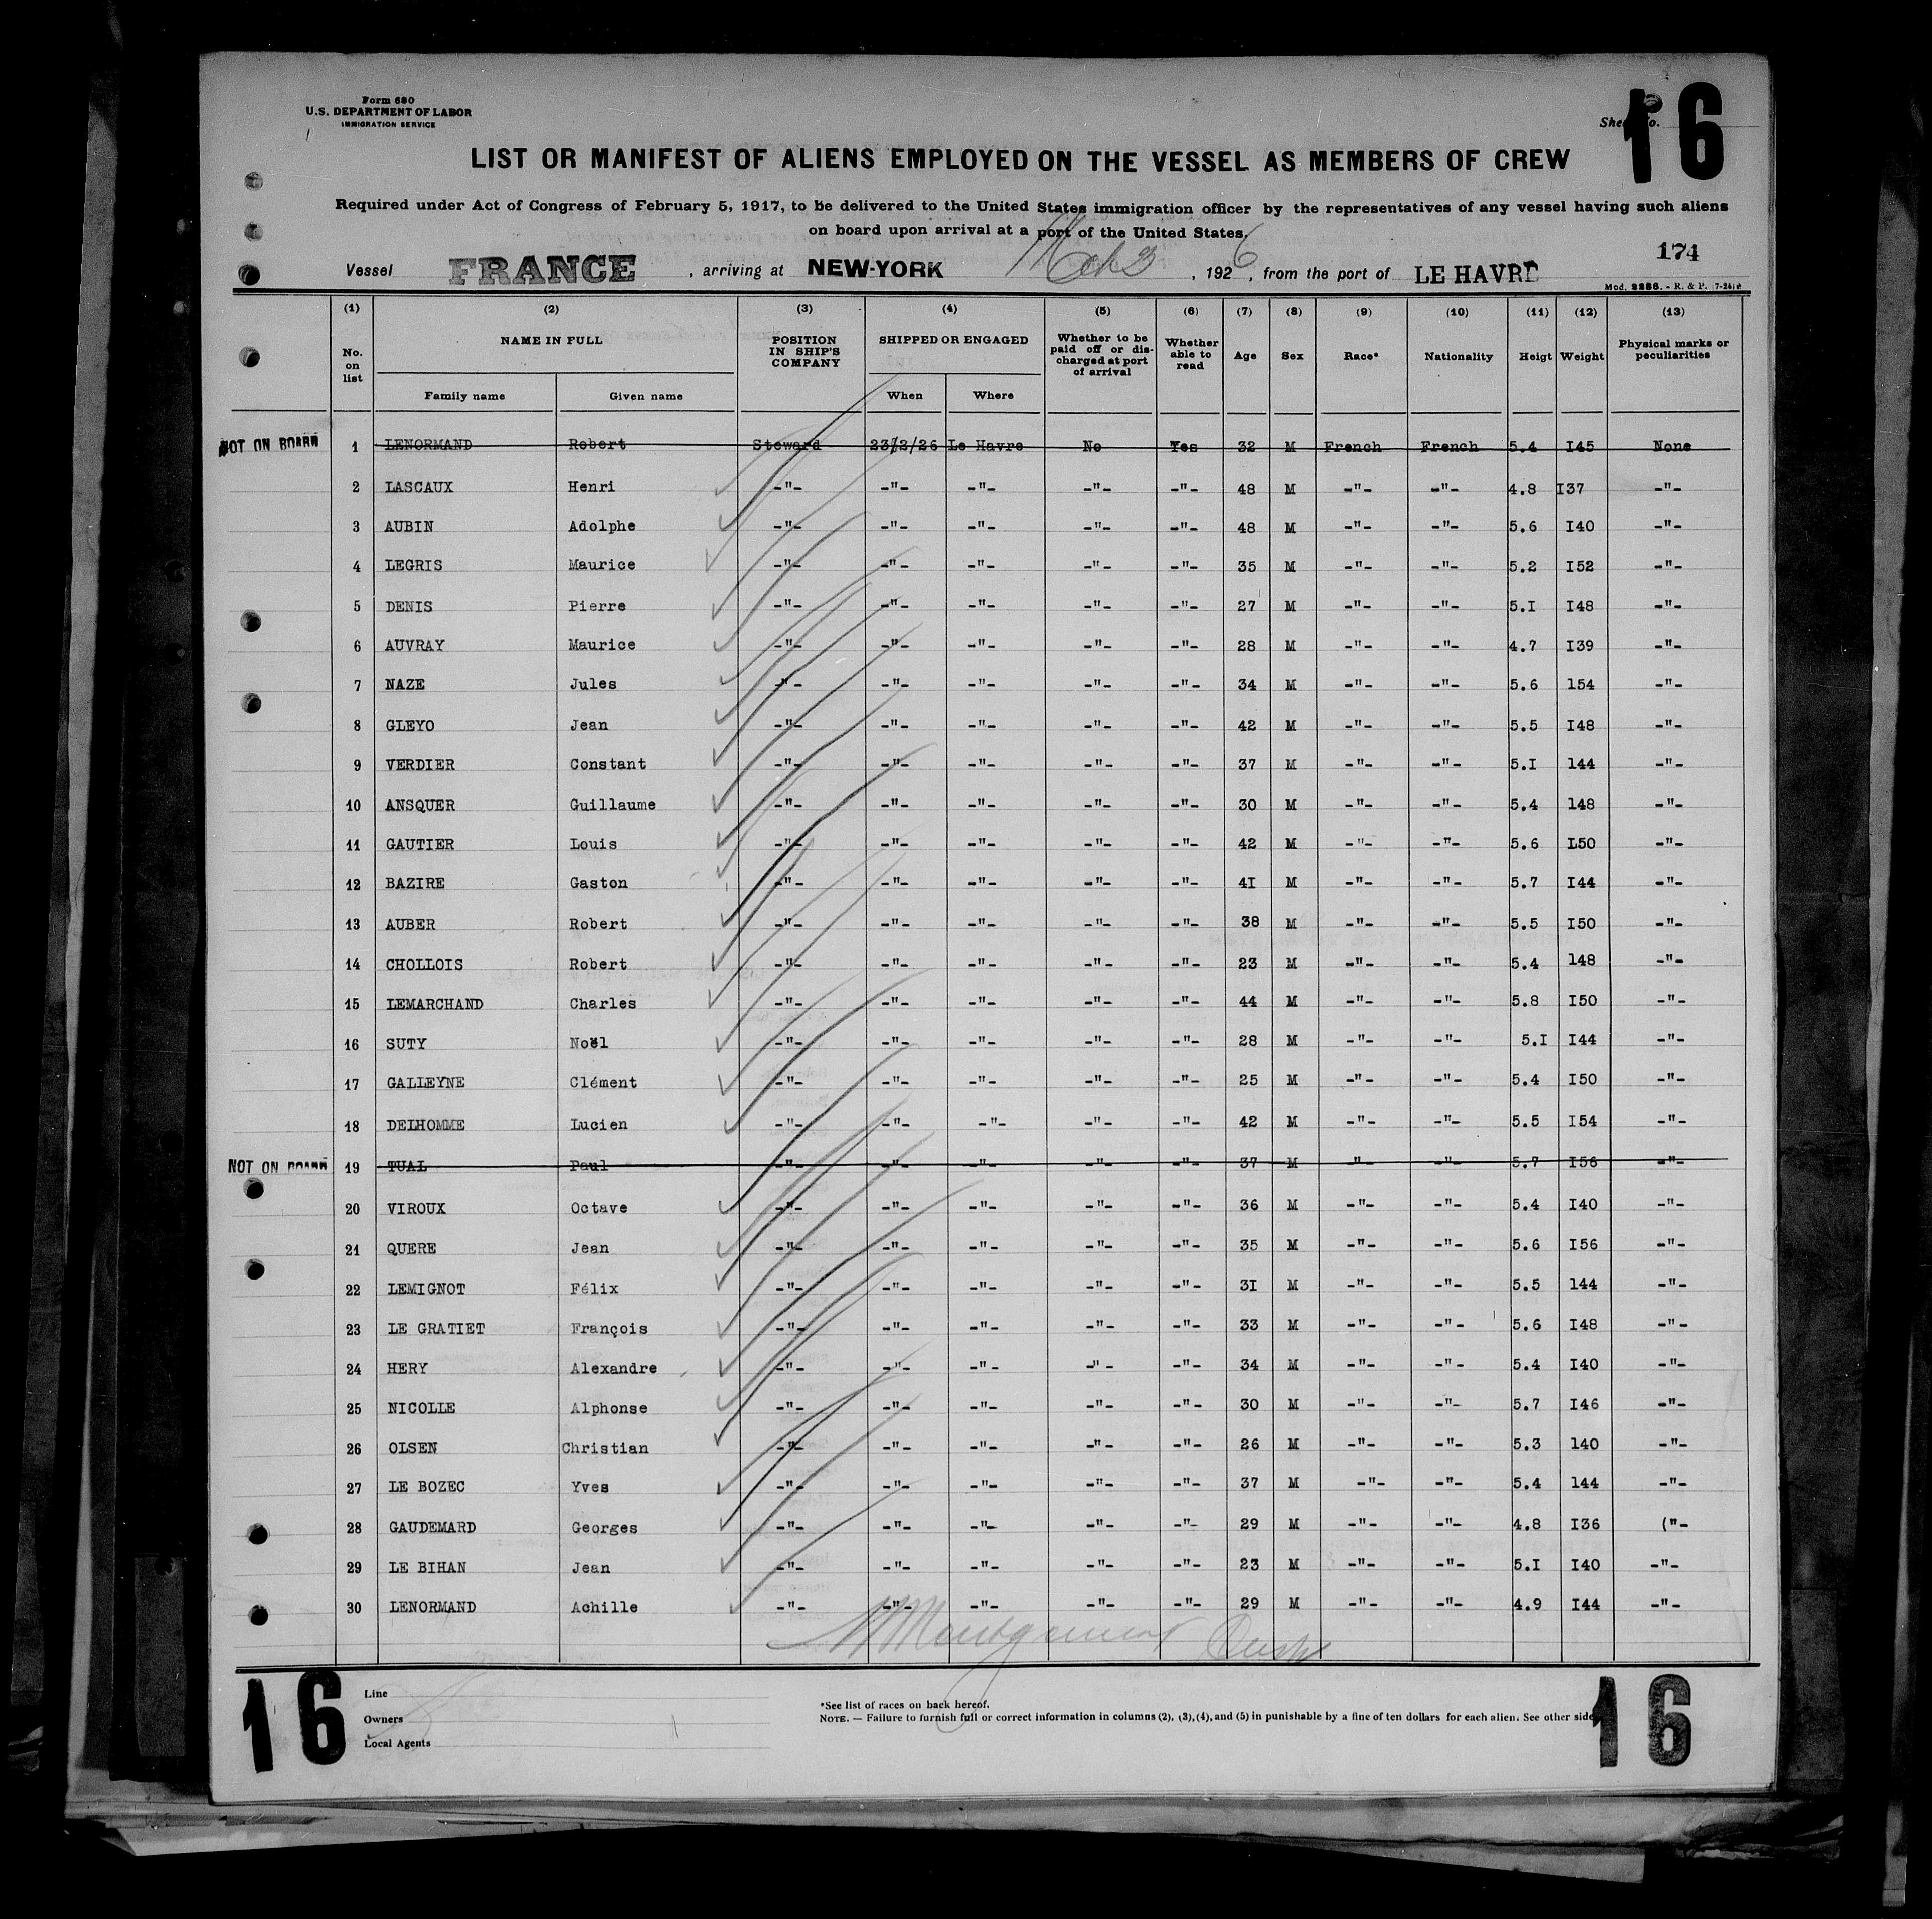 Form 680
U.S. DEPARTMENT OF LABOR
IMMIGRATION SERVICE
16
LIST OR MANIFEST OF ALIENS EMPLOYED ON THE VESSEL AS MEMBERS OF CREW
Required under Act of Congress of February 5, 1917, to be delivered to the United States immigration officer by the representatives of any vessel having such aliens
on board upon arrival at a port of the United States.
174
Vessel FRANCE , arriving at NEW-YORK Mch 3 , 1926 , from the port of LE HAVRE
Mod. 2286. - R. & P. (7-24)
(1) (2) (3) (4) (5) (6) (7) (8) (9) (10) (11) (12) (13)
No. on list NAME IN FULL Family name Given name POSITION IN SHIP'S COMPANY SHIPPED OR ENGAGED When Where Whether to be paid off or discharged at port of arrival Whether able to read Age Sex Race* Nationality Heigt Weight Physical marks or peculiarities
NOT ON BOARD 1 LENORMAND Robert Steward 23/2/26 Le Havre No Yes 32 M French French 5.4 I45 None
2 LASCAUX Henri -"- -"- -"- -"- -"- 48 M -"- -"- 4.8 I37 -"-
3 AUBIN Adolphe -"- -"- -"- -"- -"- 48 M -"- -"- 5.6 I40 -"-
4 LEGRIS Maurice -"- -"- -"- -"- -"- 35 M -"- -"- 5.2 I52 -"-
5 DENIS Pierre -"- -"- -"- -"- -"- 27 M -"- -"- 5.I I48 -"-
6 AUVRAY Maurice -"- -"- -"- -"- -"- 28 M -"- -"- 4.7 I39 -"-
7 NAZE Jules -"- -"- -"- -"- -"- 34 M -"- -"- 5.6 154 -"-
8 GLEYO Jean -"- -"- -"- -"- -"- 42 M -"- -"- 5.5 I48 -"-
9 VERDIER Constant -"- -"- -"- -"- -"- 37 M -"- -"- 5.I 144 -"-
10 ANSQUER Guillaume -"- -"- -"- -"- -"- 30 M -"- -"- 5.4 148 -"-
11 GAUTIER Louis -"- -"- -"- -"- -"- 42 M -"- -"- 5.6 L50 -"-
12 BAZIRE Gaston -"- -"- -"- -"- -"- 4I M -"- -"- 5.7 I44 -"-
13 AUBER Robert -"- -"- -"- -"- -"- 38 M -"- -"- 5.5 I50 -"-
14 CHOLLOIS Robert -"- -"- -"- -"- -"- 23 M -"- -"- 5.4 148 -"-
15 LEMARCHAND Charles -"- -"- -"- -"- -"- 44 M -"- -"- 5.8 I50 -"-
16 SUTY Noël -"- -"- -"- -"- -"- 28 M -"- -"- 5.I I44 -"-
17 GALLEYNE Clément -"- -"- -"- -"- -"- 25 M -"- -"- 5.4 I50 -"-
18 DELHOMME Lucien -"- -"- -"- -"- -"- 42 M -"- -"- 5.5 I54 -"-
NOT ON BOARD 19 TUAL Paul -"- -"- -"- -"- -"- 37 M -"- -"- 5.7 I56 -"-
20 VIROUX Octave -"- -"- -"- -"- -"- 36 M -"- -"- 5.4 I40 -"-
21 QUERE Jean -"- -"- -"- -"- -"- 35 M -"- -"- 5.6 I56 -"-
22 LEMIGNOT Félix -"- -"- -"- -"- -"- 3I M -"- -"- 5.5 144 -"-
23 LE GRATIET François -"- -"- -"- -"- -"- 33 M -"- -"- 5.6 I48 -"-
24 HERY Alexandre -"- -"- -"- -"- -"- 34 M -"- -"- 5.4 I40 -"-
25 NICOLLE Alphonse -"- -"- -"- -"- -"- 30 M -"- -"- 5.7 I46 -"-
26 OLSEN Christian -"- -"- -"- -"- -"- 26 M -"- -"- 5.3 140 -"-
27 LE BOZEC Yves -"- -"- -"- -"- -"- 37 M -"- -"- 5.4 144 -"-
28 GAUDEMARD Georges -"- -"- -"- -"- -"- 29 M -"- -"- 4.8 I36 ("-
29 LE BIHAN Jean -"- -"- -"- -"- -"- 23 M -"- -"- 5.I I40 -"-
30 LENORMAND Achille -"- -"- -"- -"- -"- 29 M -"- -"- 4.9 I44 -"-
Line
Owners
Local Agents
*See list of races on back hereof.
NOTE. — Failure to furnish full or correct information in columns (2), (3), (4), and (5) in punishable by a fine of ten dollars for each alien. See other side
16
16